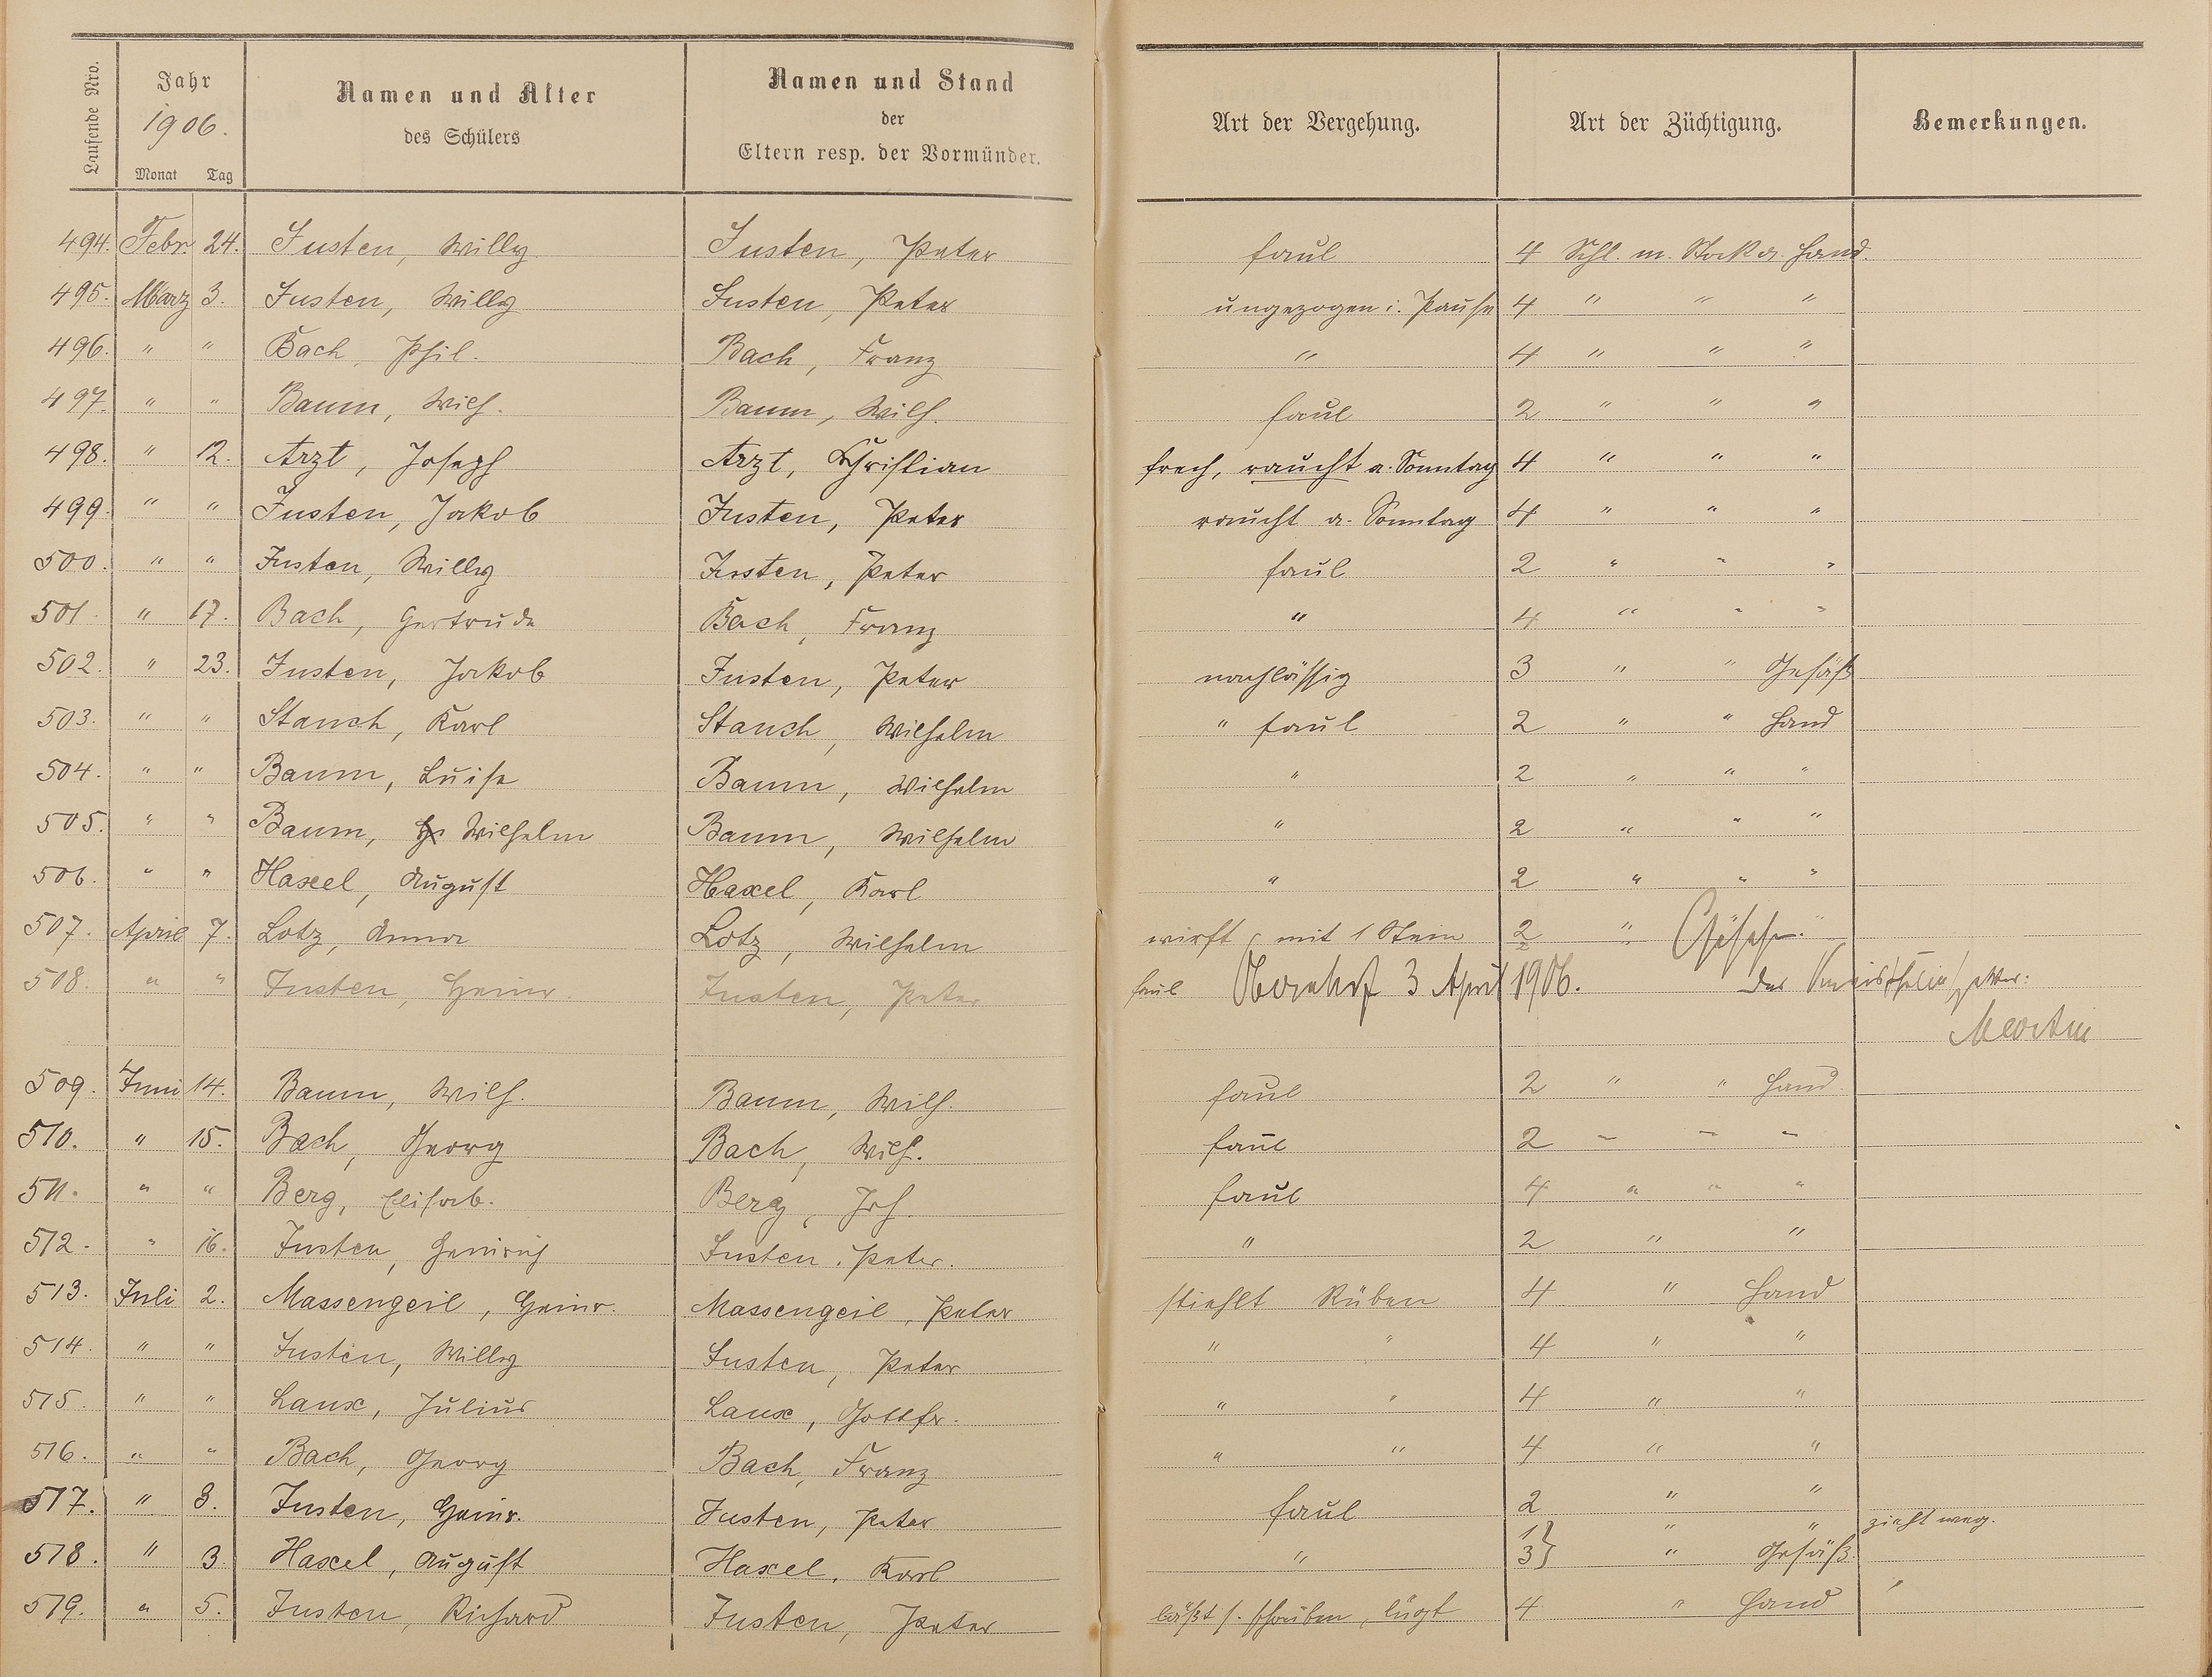 Laufende Nro.
Jahr
1906.
Monat Tag
Namen und Alter
des Schülers
Namen und Stand
der
Eltern resp. der Vormünder.
Art der Vergehung.
Art der Züchtigung.
Bemerkungen.
494. Febr. 24. Justen, Willy Justen, Peter faul 4 Schl. m. Stock a. Hand.
495. März 3. Justen, Willy Justen, Peter ungezogen i. Pause 4 " " "
496. " " Bach, Phil. Bach, Franz " 4 " " "
497. " " Baum, Wilh. Baum, Wilh. faul 2 " " "
498. " 12. Arzt, Joseph Arzt, Christian frech, raucht a. Sonntag 4 " " "
499. " " Justen, Jakob Justen, Peter raucht a. Sonntag 4 " " "
500. " " Justen, Willy Justen, Peter faul 2 " " "
501. " 17. Bach, Gertrude Bach, Franz " 4 " " "
502. " 23. Justen, Jakob Justen, Peter nachlässig 3 " " Gesäß
503. " " Stauch, Karl Stauch, Wilhelm " faul 2 " " Hand
504. " " Baum, Luise Baum, Wilhelm " 2 " " "
505. " " Baum, Wilhelm Baum, Wilhelm " 2 " " "
506. " " Haxel, August Haxel, Karl " 2 " " "
507. April 7. Lotz, Anna Lotz, Wilhelm wirft mit 1 Stein 2 " "
Gesehen.
508. " " Justen, Heinr. Justen, Peter faul
Obernhof 3 April 1906. Der Kreisschulinspektor:
Martin
509. Juni 14. Baum, Wilh. Baum, Wilh. faul 2 " " Hand.
510. " 15. Bach, Georg Bach, Wilh. faul 2 " " "
511. " " Berg, Elisab. Berg, Joh. faul 4 " " "
512. " 16. Justen, Heinrich Justen, Peter. " 2 " "
513. Juli 2. Massengeil, Heinr. Massengeil, Peter stiehlt Rüben 4 " Hand
514. " " Justen, Willy Justen, Peter " " 4 " "
515. " " Laux, Julius Laux, Gottfr. " " 4 " "
516. " " Bach, Georg Bach, Franz " " 4 " "
517. " 3. Justen, Heinr. Justen, Peter faul 2 " "
518. " 3 Haxel, August Haxel, Karl " 1 } " " zieht weg.
3 } " Gesäß.
519. " 5. Justen, Richard Justen, Peter läßt s. schreiben, lügt 4 " Hand